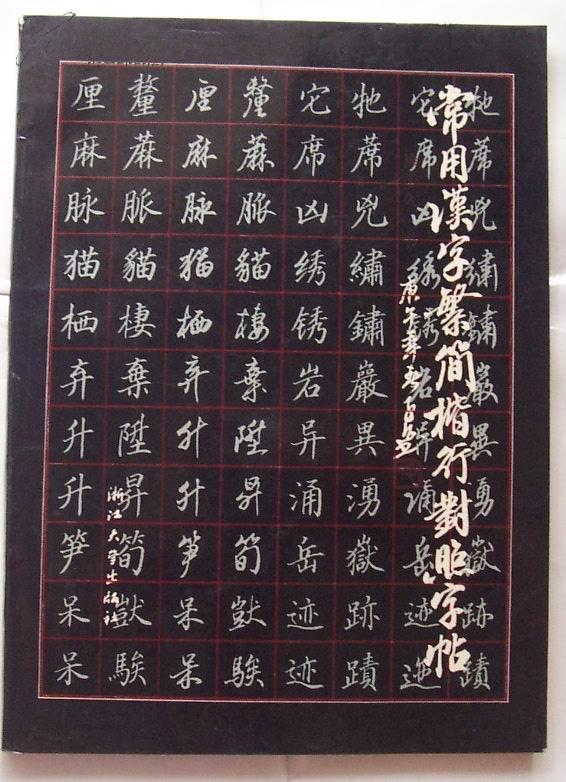 常用漢字繁簡楷行對照字帖
浙江大學出版社
厘 釐 厘 釐 它 牠 它 牠
麻 蔴 麻 蔴 席 蓆 席 蓆
脉 脈 脉 脈 凶 兇 凶 兇
猫 貓 猫 貓 绣 繡 绣 繡
栖 棲 栖 棲 锈 鏽 锈 鏽
弃 棄 弃 棄 岩 巖 岩 巖
升 陞 升 陞 异 異 异 異
升 昇 升 昇 涌 湧 涌 湧
笋 筍 笋 筍 岳 嶽 岳 嶽
呆 獃 呆 獃 迹 跡 迹 跡
呆 騃 呆 騃 迹 蹟 迹 蹟